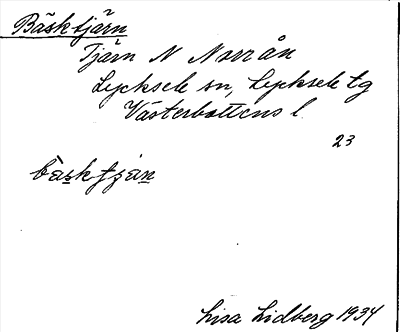 Bäsktjärn
Tjärn N Norrån
Lycksele sn, Lycksele tg
Västerbottens l.
23
bäsktjän
Lisa Lidberg 1934